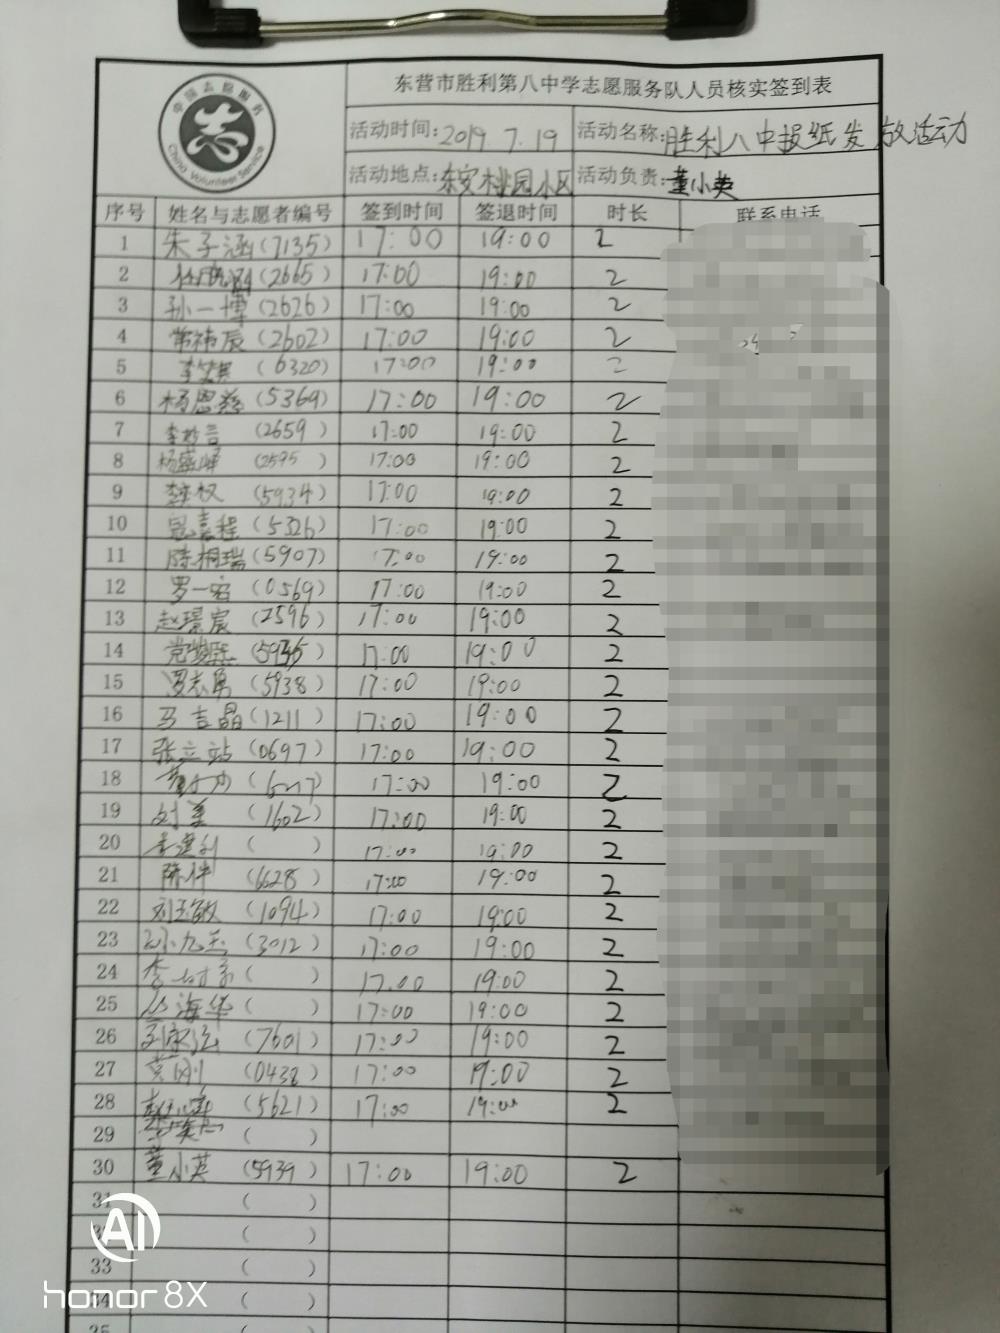 中国志愿服务
China Volunteer Service
东营市胜利第八中学志愿服务队人员核实签到表
活动时间: 2019.7.19 活动名称: 胜利八中报纸发放活动
活动地点: 东安桃园小区 活动负责: 董小英
序号 姓名与志愿者编号 签到时间 签退时间 时长 联系电话
1 朱子涵(7135) 17:00 19:00 2
2 (2665) 17:00 19:00 2
3 孙一博(2626) 17:00 19:00 2
4 常祎辰(2602) 17:00 19:00 2
5 (6320) 17:00 19:00 2
6 杨恩慈(5369) 17:00 19:00 2
7 (2659) 17:00 19:00 2
8 (2595) 17:00 19:00 2
9 (5934) 17:00 19:00 2
10 (5326) 17:00 19:00 2
11 陈桐瑞(5907) 17:00 19:00 2
12 (0569) 17:00 19:00 2
13 赵璟宸(2596) 17:00 19:00 2
14 17:00 19:00 2
15 (5938) 17:00 19:00 2
16 马吉晶(1211) 17:00 19:00 2
17 张立站(0697) 17:00 19:00 2
18 17:00 19:00 2
19 刘美(1602) 17:00 19:00 2
20 ( ) 17:00 19:00 2
21 陈伟(6628) 17:00 19:00 2
22 刘玉敏(1094) 17:00 19:00 2
23 (3012) 17:00 19:00 2
24 ( ) 17:00 19:00 2
25 丛海华( ) 17:00 19:00 2
26 (7601) 17:00 19:00 2
27 莫刚(0438) 17:00 19:00 2
28 (5621) 17:00 19:00 2
29 ( )
30 董小英(5939) 17:00 19:00 2
31 ( )
( )
33 ( )
34 ( )
35
AI
honor 8X